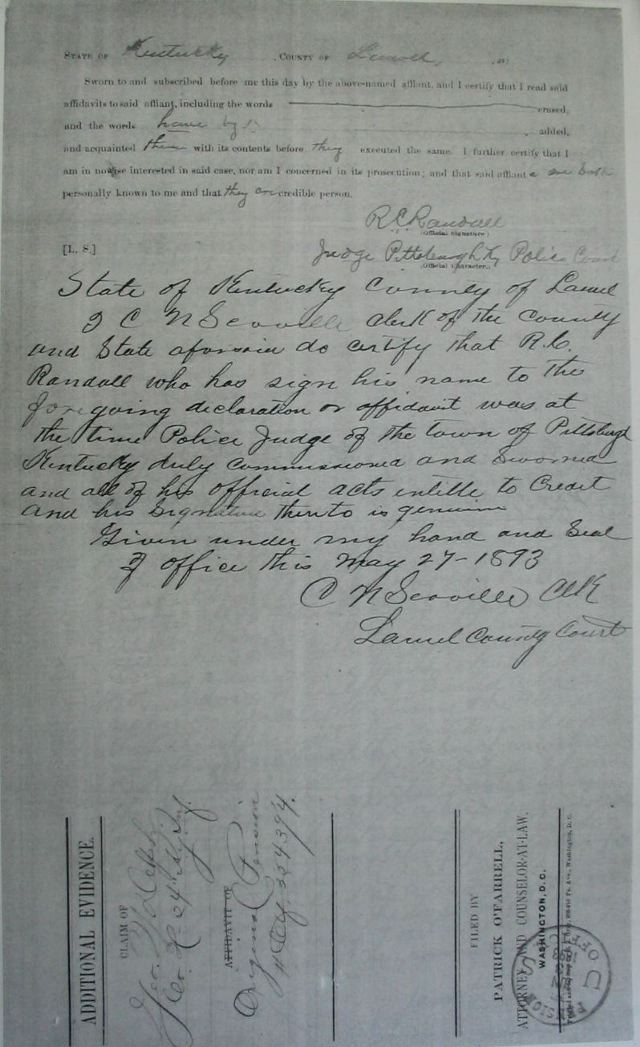 STATE OF Kentucky, COUNTY OF Laurel, ss:
Sworn to and subscribed before me this day by the above-named affiant, and I certify that I read said
affidavits to said affiant, including the words erased,
and the words added,
and acquainted them with its contents before they executed the same. I further certify that I
am in nowise interested in said case, nor am I concerned in its prosecution; and that said affiants are both
personally known to me and that they are credible person.
R.C. Randall
(Official Signature.)
[L. S.] Judge Pittsburgh Ky Police Court
(Official Character.)
State of Kentucky County of Laurel
I C N Scoville clerk of the County
and State aforsaid do certify that R.C.
Randall who has sign his name to the
foregoing declaration or affidavit was at
the time Police Judge of the town of Pittsburgh
Kentucky duly commissioned and Sworned
and all of his official acts intitle to Credit
and his Signature thereto is genuine
Given under my hand and Seal
of office this May 27-1893
C N Scoville Clk
Laurel County Court
ADDITIONAL EVIDENCE.
CLAIM OF
Geo.
Co. 24" Ky Inf.
AFFIDAVIT OF
Original Pension
FILED BY
PATRICK O'FARRELL,
ATTORNEY AND COUNSELOR-AT-LAW,
WASHINGTON, D. C.
U S PENSION OFFICE